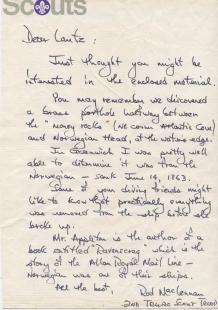 Scouts
Dear Lantz:
Just thought you might be
interested in the enclosed material.
You may remember we discovered
a brass porthole halfway between
the "money rocks" (NE corner Atlantis Cove)
and Norwegian Head, at the waters edge.
In Greenwich I was pretty well
able to determine it was from the
Norwegian - sank June 14, 1863.
Some of your diving friends might
like to know that practically everything
was removed from the ship before she
broke up.
Mr. Appleton is the author of a
book entitled "Ravenscrag" which is the
story of the Allan Royal Mail line -
Norwegian was one of their ships.
All the best, Rod MacLennan
2nd Truro Scout Troop